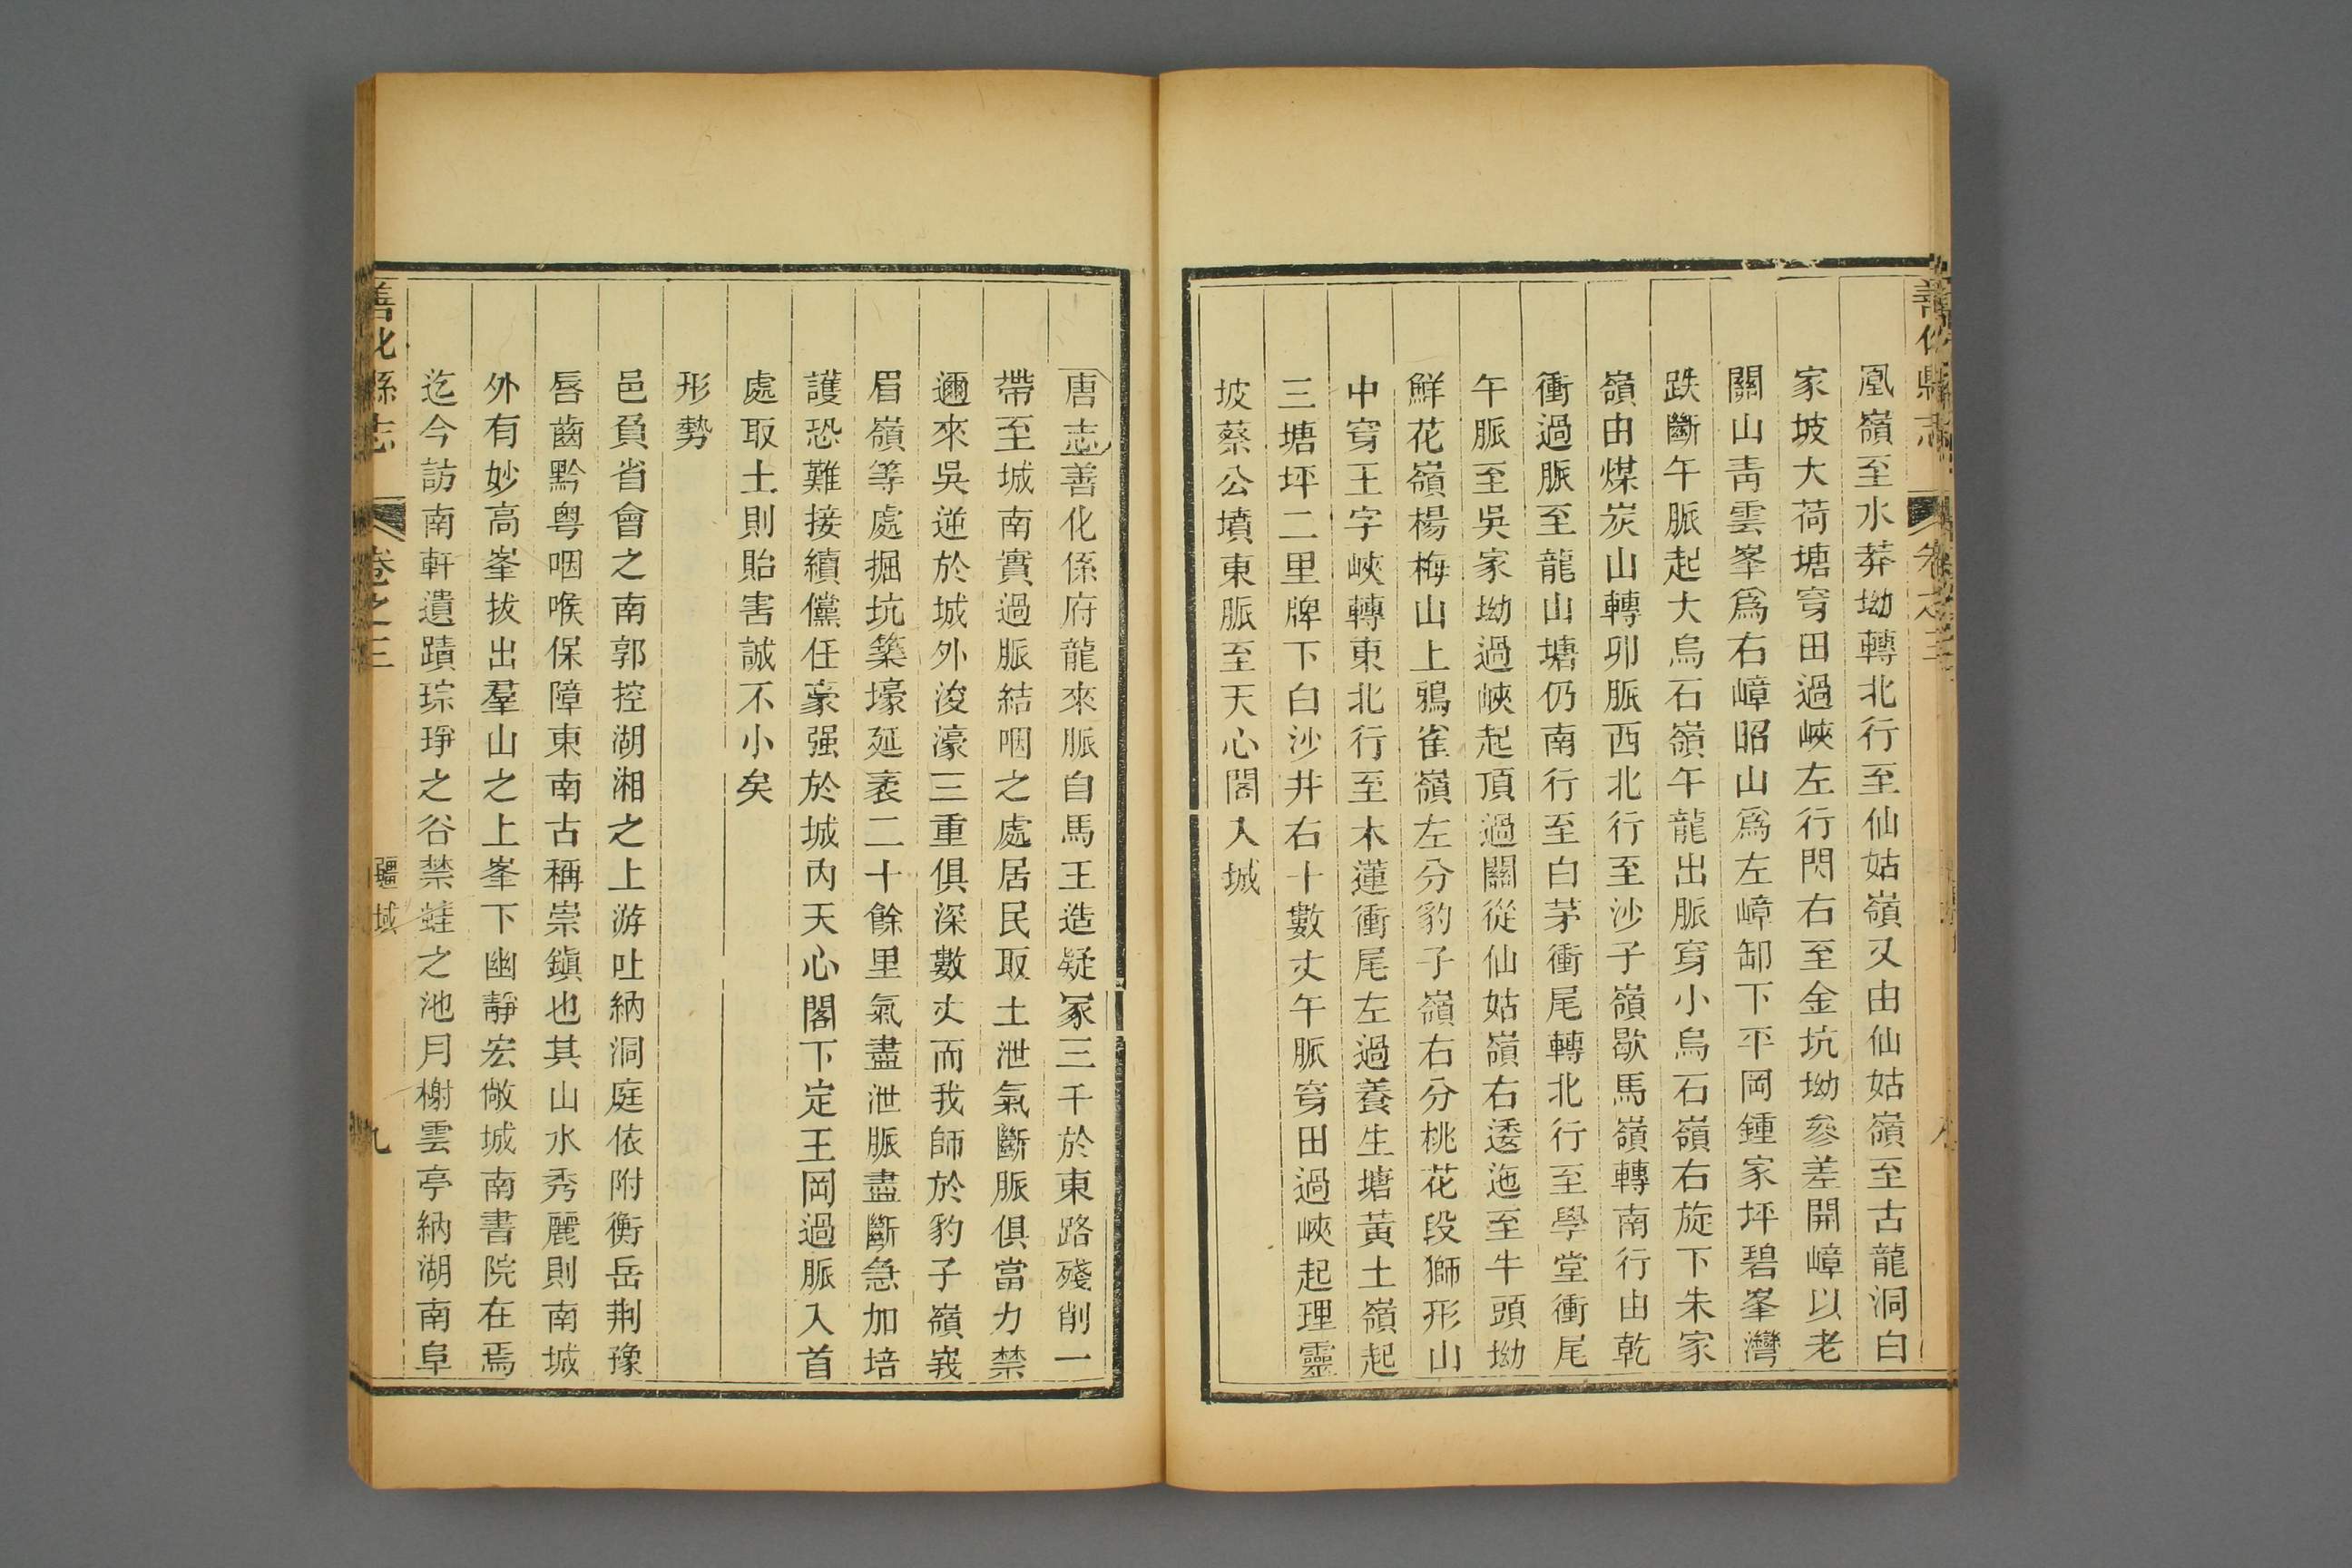 善化縣志 卷之三
凰嶺至水莽坳轉北行至仙姑嶺又由仙姑嶺至古龍洞白
家坡大荷塘穿田過峽左行閃右至金坑坳參差開嶂以老
關山靑雲峯爲右嶂昭山爲左嶂卸下平岡鍾家坪碧峯灣
跌斷午脈起大烏石嶺午龍出脈穿小烏石嶺右旋下朱家
嶺由煤炭山轉卯脈西北行至沙子嶺歇馬嶺轉南行由乾
衝過脈至龍山塘仍南行至白茅衝尾轉北行至學堂衝尾
午脈至吳家坳過峽起頂過關從仙姑嶺右逶迤至牛頭坳
鮮花嶺楊梅山上鴉雀嶺左分豹子嶺右分桃花段獅形山
中穿王字峽轉東北行至木蓮衝尾左過養生塘黃土嶺起
三塘坪二里牌下白沙井右十數丈午脈穿田過峽起理靈
坡蔡公墳東脈至天心閣入城
唐志善化係府龍來脈自馬王造疑冢三千於東路殘削一
帶至城南實過脈結咽之處居民取土泄氣斷脈俱當力禁
邇來吳逆於城外浚濠三重俱深數丈而我師於豹子嶺峩
眉嶺等處掘坑築壕延袤二十餘里氣盡泄脈盡斷急加培
護恐難接續儻任豪强於城內天心閣下定王岡過脈入首
處取土則貽害誠不小矣
形勢
邑負省會之南郭控湖湘之上游吐納洞庭依附衡岳荆豫
唇齒黔粤咽喉保障東南古稱崇鎭也其山水秀麗則南城
外有妙高峯拔出羣山之上峯下幽靜宏敞城南書院在焉
迄今訪南軒遺蹟琮琤之谷禁蛙之池月榭雲亭納湖南阜
善化縣志 卷之三 疆域 九